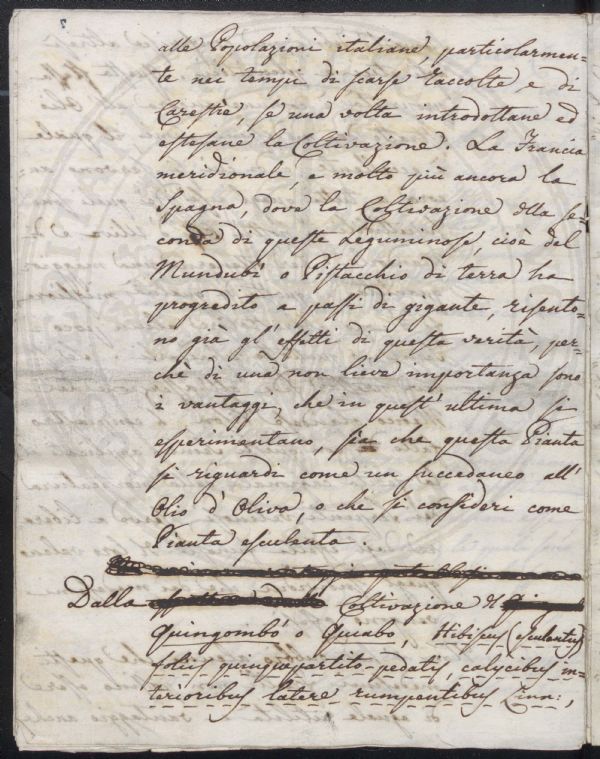 alle Popolazioni italiane, particolarmen-
te nei tempi di scarse raccolte e di
Carestie, se una volta introdottane ed
estesane la Coltivazione. La Francia
meridionale, e molto più ancora la
Spagna, dove la Coltivazione della se-
conda di queste Leguminose, cioè del
Mundubi o Pistacchio di terra ha
progredito a passi di gigante, risento-
no già gl' effetti di questa verità, per-
chè di una non lieve importanza sono
i vantaggi, che in quest' ultima si
esperimentano, sia che questa Pianta
si riguardi come un succedaneo all'
Olio d' Oliva, o che si consideri come
Pianta esculenta.
Dalla Coltivazione del
Quingombó o Quiabo, Hibiscus (esculentus)
foliis quinquepartito-pedatis, calycibus in-
terioribus latere rumpentibus Linn:,